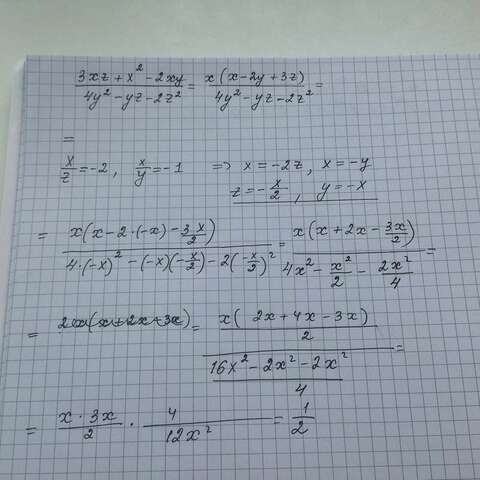 (3xz + x² - 2xy)/(4y² - yz - 2z²) = x(x - 2y + 3z)/(4y² - yz - 2z²) =
=
x/z = -2, x/y = -1 => x = -2z, x = -y
z = -x/2, y = -x
= x(x - 2·(-x) - 3x/2)/(4·(-x)² - (-x)(-x/2) - 2(-x/2)²) = x(x + 2x - 3x/2)/(4x² - x²/2 - 2x²/4) =
= x(2x + 4x - 3x)/2 / (16x² - 2x² - 2x²)/4 =
= x·3x/2 · 4/12x² = 1/2